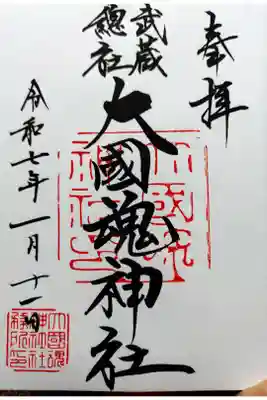 奉拝
武蔵
總社
大國魂神社
令和七年一月十一日
大國魂
神社